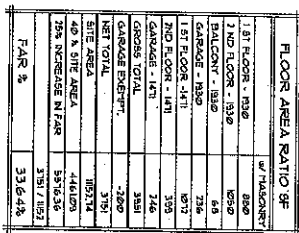 FLOOR AREA RATIO SF
W/ MASONRY
1 ST FLOOR - 1930 880
2 ND FLOOR - 1930 1050
BALCONY - 1930 68
GARAGE - 1930 236
1 ST FLOOR - 1471 1072
2ND FLOOR - 1471 399
GARAGE - 1471 246
GROSS TOTAL 3951
GARAGE EXEMPT. -200
NET TOTAL 3751
SITE AREA 11152.74
40 % SITE AREA 4461.09
25% INCREASE IN FAR 5576.36
3751 / 11152
FAR % 33.64%